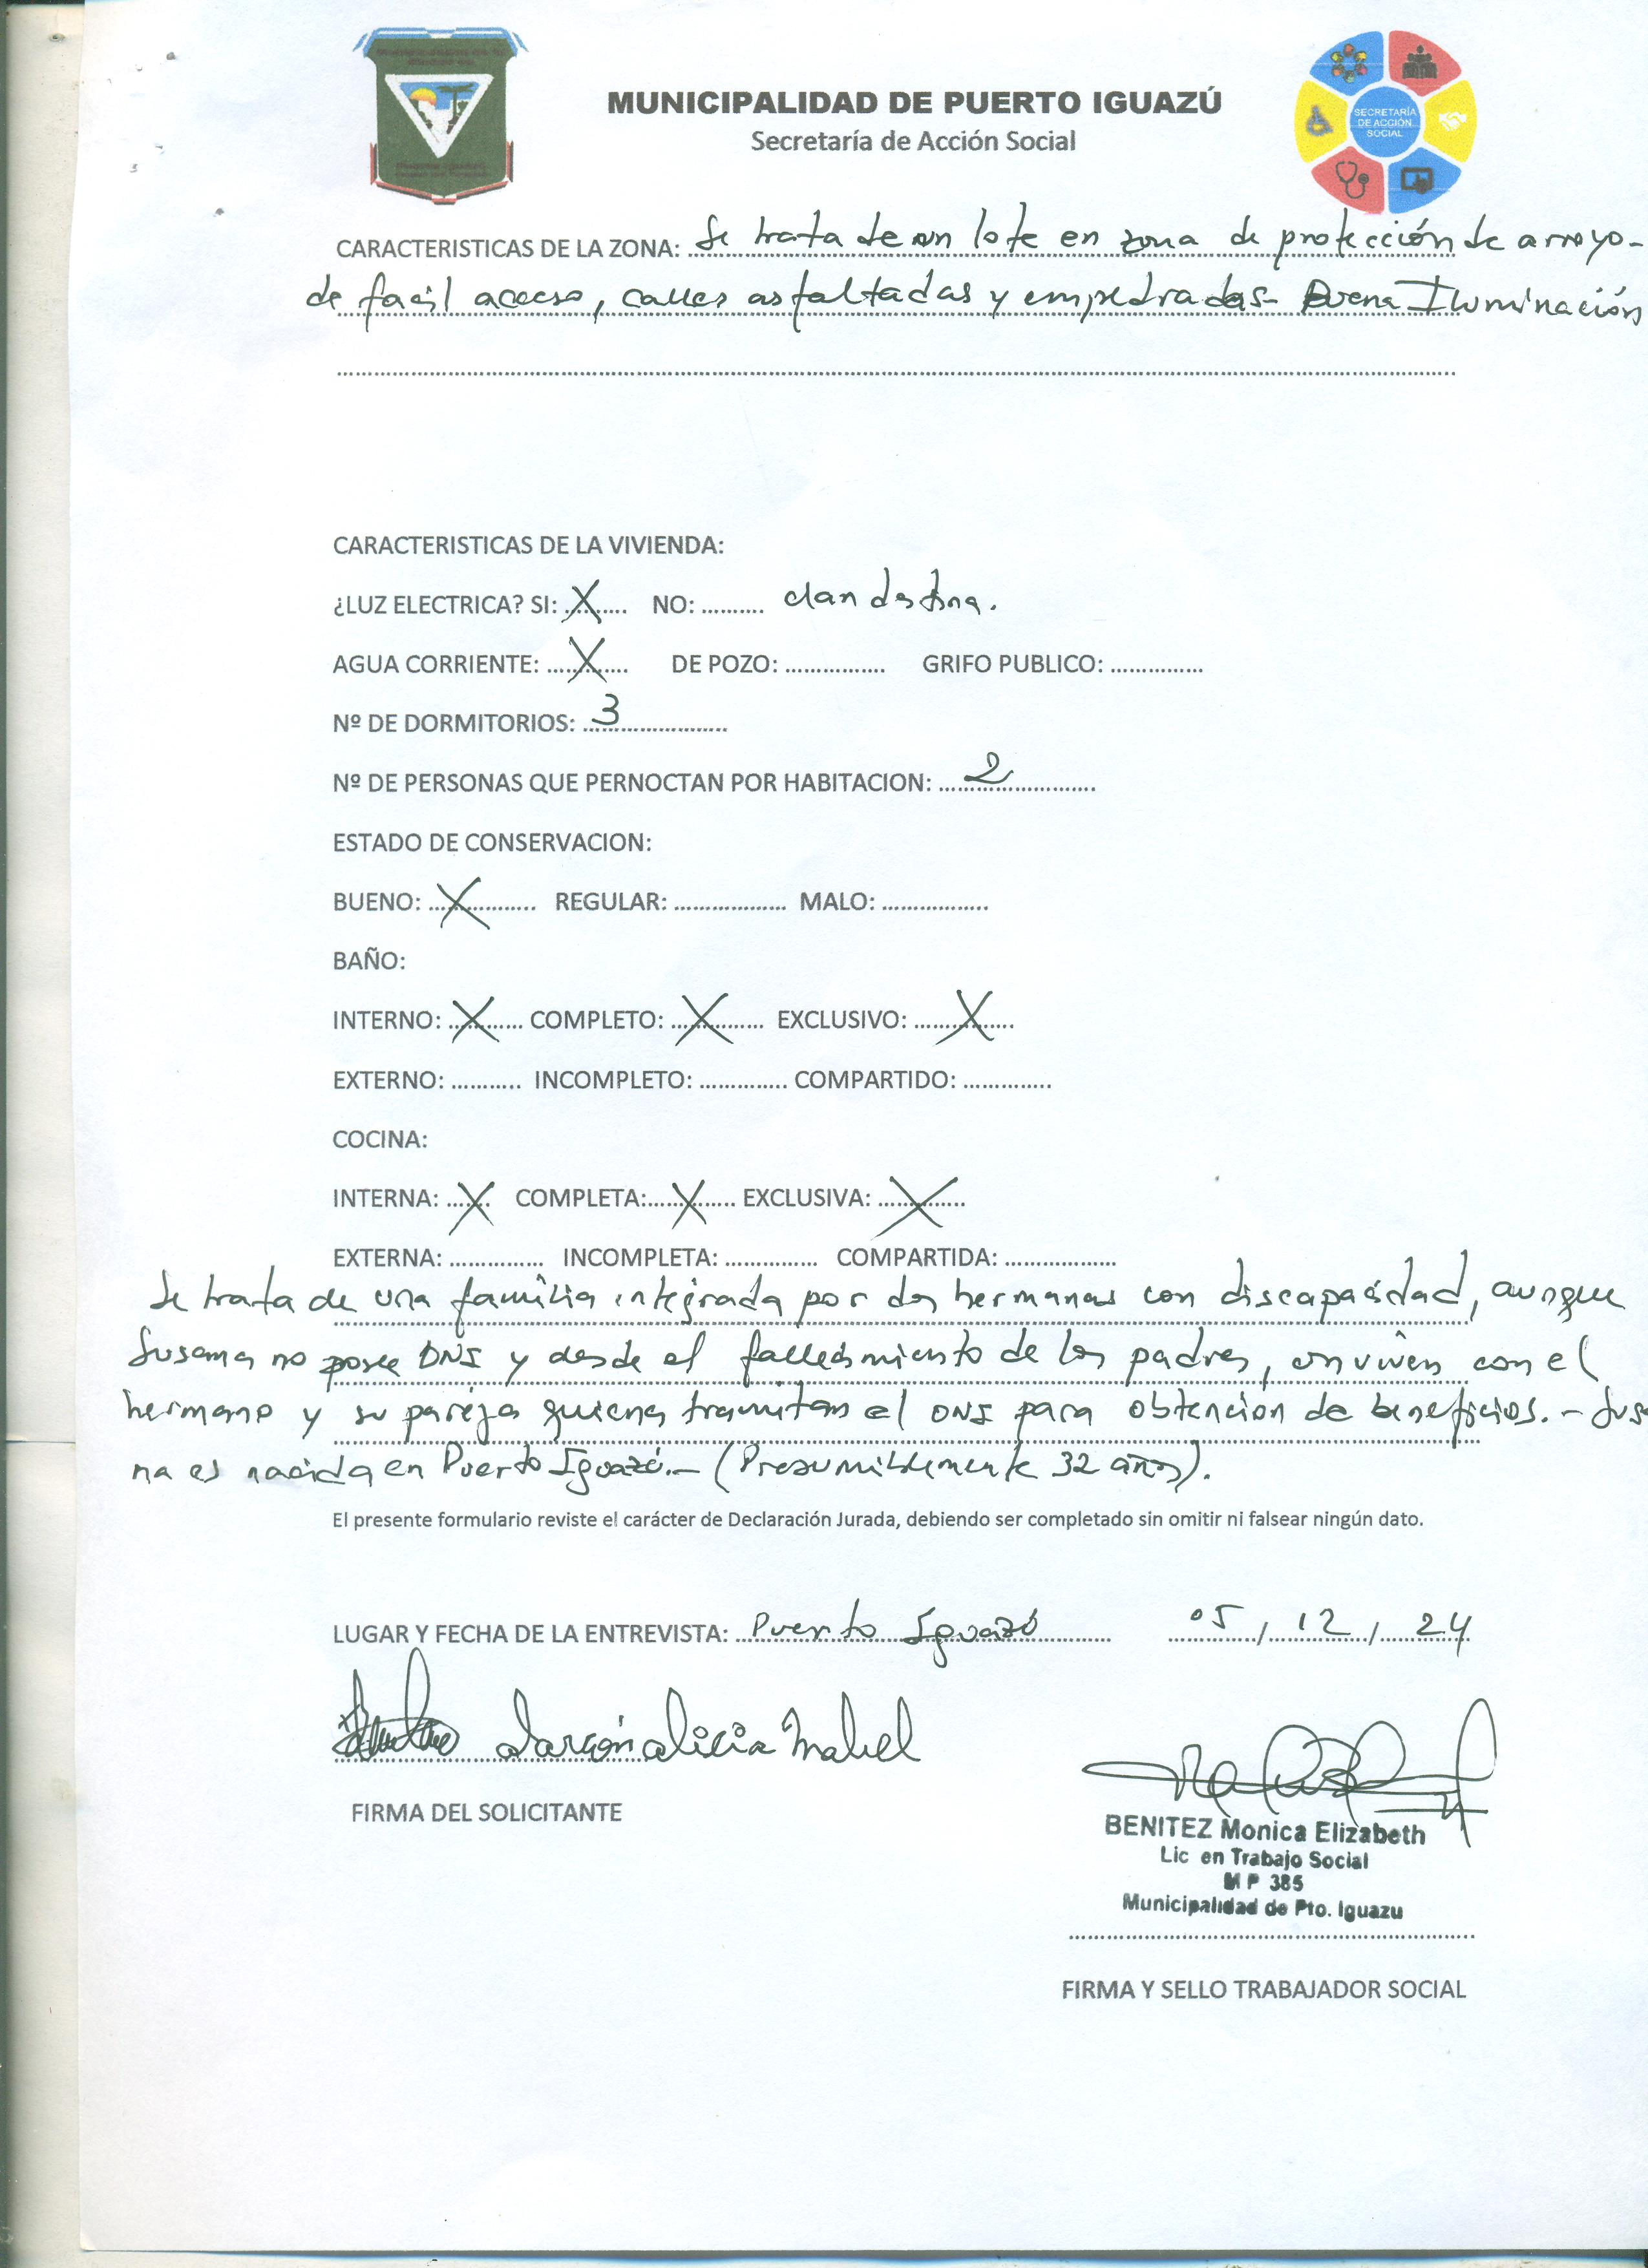 MUNICIPALIDAD DE PUERTO IGUAZÚ
Secretaría de Acción Social
SECRETARÍA
DE ACCIÓN
SOCIAL
CARACTERISTICAS DE LA ZONA: Se trata de un lote en zona de protección de arroyo-
de facil acceso, calles asfaltadas y empedradas- Buena Iluminación
CARACTERISTICAS DE LA VIVIENDA:
¿LUZ ELECTRICA? SI: X NO: .......... clandestina.
AGUA CORRIENTE: X DE POZO: ................ GRIFO PUBLICO: ...............
Nº DE DORMITORIOS: 3
Nº DE PERSONAS QUE PERNOCTAN POR HABITACION: 2
ESTADO DE CONSERVACION:
BUENO: X REGULAR: .................. MALO: .................
BAÑO:
INTERNO: X COMPLETO: X EXCLUSIVO: X
EXTERNO: ........... INCOMPLETO: .............. COMPARTIDO: ..............
COCINA:
INTERNA: X COMPLETA: X EXCLUSIVA: X
EXTERNA: ............... INCOMPLETA: ............... COMPARTIDA: ..................
Se trata de una familia integrada por dos hermanas con discapacidad, aunque
Susana no posee DNI y desde el fallecimiento de los padres, conviven con el
hermano y su pareja quienes tramitan el DNI para obtención de beneficios.- Susa
na es nacida en Puerto Iguazú.- (Presumiblemente 32 años).
El presente formulario reviste el carácter de Declaración Jurada, debiendo ser completado sin omitir ni falsear ningún dato.
LUGAR Y FECHA DE LA ENTREVISTA: Puerto Iguazú 05 / 12 / 24
alicia Mabel
FIRMA DEL SOLICITANTE
BENITEZ Monica Elizabeth
Lic en Trabajo Social
M P 385
Municipalidad de Pto. Iguazu
FIRMA Y SELLO TRABAJADOR SOCIAL